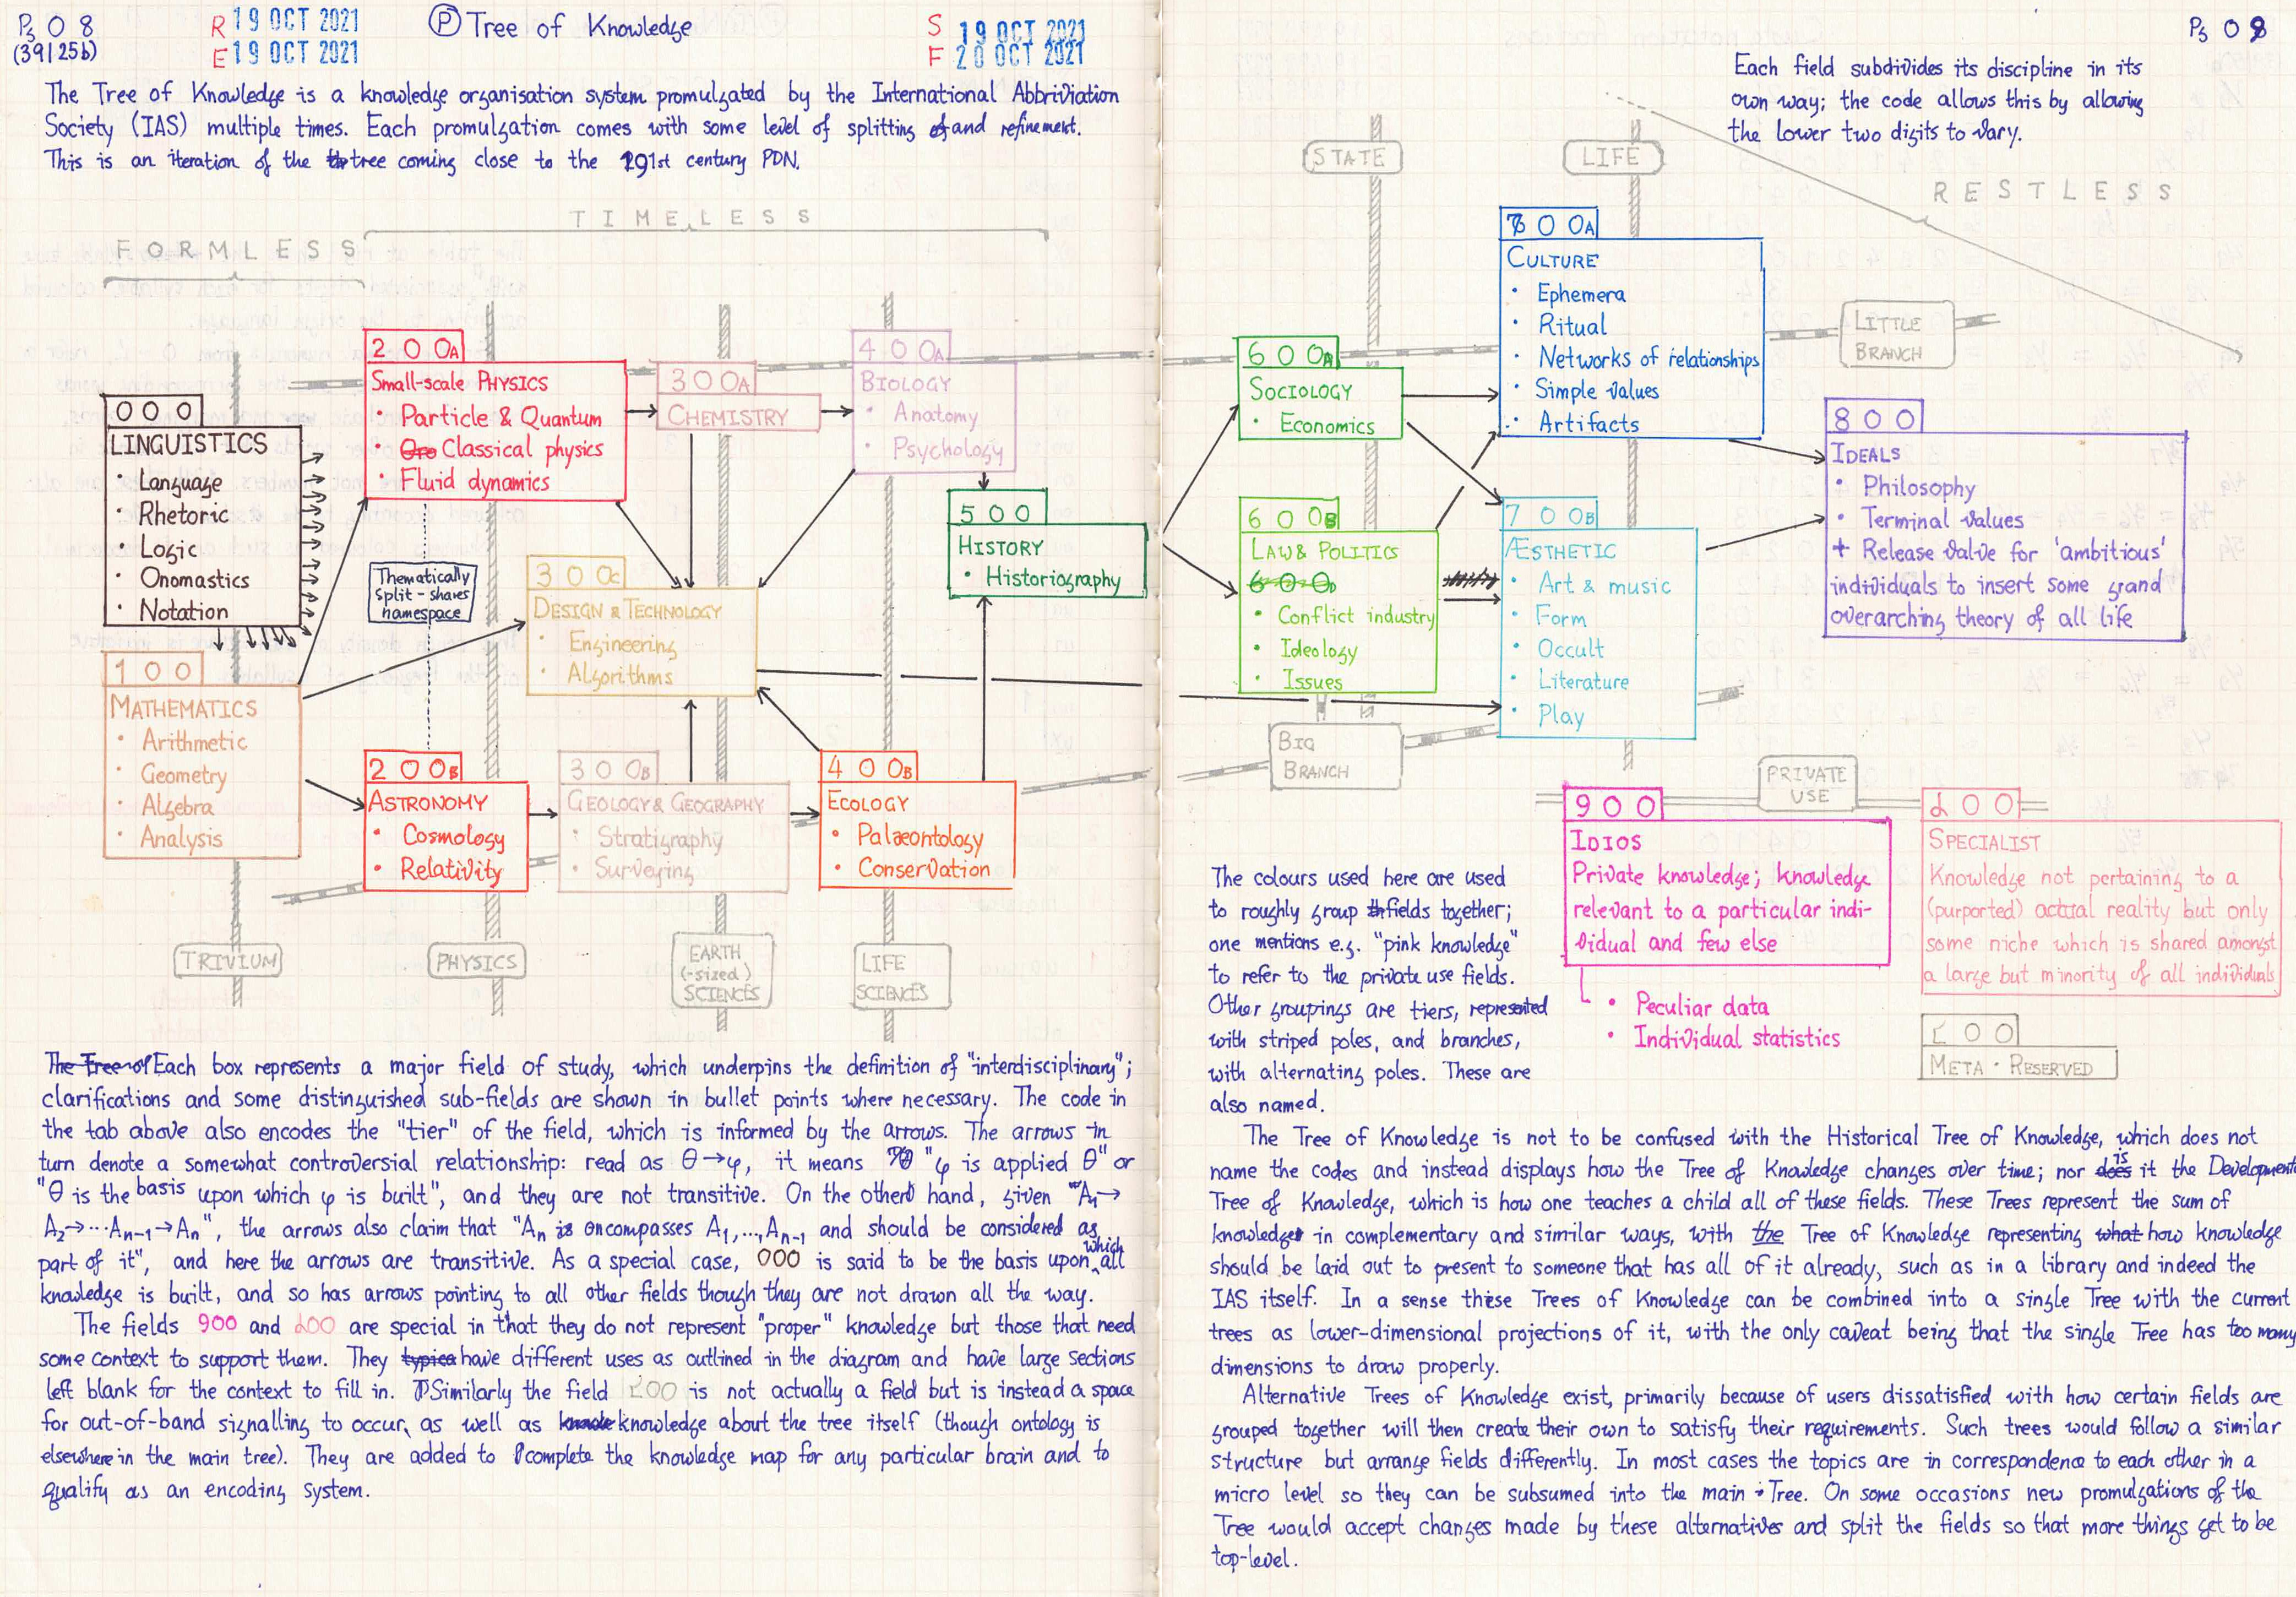 Pg 08
(39|25b)
R 19 OCT 2021
E 19 OCT 2021
Ⓟ Tree of Knowledge
S 19 OCT 2021
F 20 OCT 2021
The Tree of Knowledge is a knowledge organisation system promulgated by the International Abbriviation
Society (IAS) multiple times. Each promulgation comes with some level of splitting and refinement.
This is an iteration of the tree coming close to the 191st century PDN.
TIMELESS
FORMLESS
000
LINGUISTICS
• Language
• Rhetoric
• Logic
• Onomastics
• Notation
100
MATHEMATICS
• Arithmetic
• Geometry
• Algebra
• Analysis
TRIVIUM
200A
Small-scale PHYSICS
• Particle & Quantum
• Classical physics
• Fluid dynamics
Thematically
split - shares
namespace
200B
ASTRONOMY
• Cosmology
• Relativity
PHYSICS
300A
CHEMISTRY
300C
DESIGN & TECHNOLOGY
• Engineering
• Algorithms
300B
GEOLOGY & GEOGRAPHY
• Stratigraphy
• Surveying
EARTH
(-sized)
SCIENCES
400A
BIOLOGY
• Anatomy
• Psychology
400B
ECOLOGY
• Palæontology
• Conservation
LIFE
SCIENCES
500
HISTORY
• Historiography
The Tree of Each box represents a major field of study, which underpins the definition of "interdisciplinary";
clarifications and some distinguished sub-fields are shown in bullet points where necessary. The code in
the tab above also encodes the "tier" of the field, which is informed by the arrows. The arrows in
turn denote a somewhat controversial relationship: read as θ→φ, it means "φ is applied θ" or
"θ is the basis upon which φ is built", and they are not transitive. On the other hand, given "A₁→
A₂→···Aₙ₋₁→Aₙ", the arrows also claim that "Aₙ encompasses A₁,...,Aₙ₋₁ and should be considered as
part of it", and here the arrows are transitive. As a special case, 000 is said to be the basis upon which all
knowledge is built, and so has arrows pointing to all other fields though they are not drawn all the way.
The fields 900 and ↊00 are special in that they do not represent "proper" knowledge but those that need
some context to support them. They typica have different uses as outlined in the diagram and have large sections
left blank for the context to fill in. Similarly the field ↋00 is not actually a field but is instead a space
for out-of-band signalling to occur, as well as knowledge about the tree itself (though ontology is
elsewhere in the main tree). They are added to complete the knowledge map for any particular brain and to
qualify as an encoding system.
Pg 08
Each field subdivides its discipline in its
own way; the code allows this by allowing
the lower two digits to vary.
RESTLESS
STATE
LIFE
600A
SOCIOLOGY
• Economics
600B
LAW & POLITICS
600b
• Conflict industry
• Ideology
• Issues
BIG
BRANCH
700A
CULTURE
• Ephemera
• Ritual
• Networks of relationships
• Simple values
• Artifacts
LITTLE
BRANCH
700B
ÆSTHETIC
• Art & music
• Form
• Occult
• Literature
• Play
800
IDEALS
• Philosophy
• Terminal values
+ Release valve for 'ambitious'
individuals to insert some grand
overarching theory of all life
PRIVATE
USE
900
IDIOS
Private knowledge; knowledge
relevant to a particular indi-
vidual and few else
• Peculiar data
• Individual statistics
↊00
SPECIALIST
Knowledge not pertaining to a
(purported) actual reality but only
some niche which is shared amongst
a large but minority of all individuals
↋00
META · RESERVED
The colours used here are used
to roughly group fields together;
one mentions e.g. "pink knowledge"
to refer to the private use fields.
Other groupings are tiers, represented
with striped poles, and branches,
with alternating poles. These are
also named.
The Tree of Knowledge is not to be confused with the Historical Tree of Knowledge, which does not
name the codes and instead displays how the Tree of Knowledge changes over time; nor does is it the Development
Tree of Knowledge, which is how one teaches a child all of these fields. These Trees represent the sum of
knowledge in complementary and similar ways, with the Tree of Knowledge representing what how knowledge
should be laid out to present to someone that has all of it already, such as in a library and indeed the
IAS itself. In a sense these Trees of Knowledge can be combined into a single Tree with the current
trees as lower-dimensional projections of it, with the only caveat being that the single Tree has too many
dimensions to draw properly.
Alternative Trees of Knowledge exist, primarily because of users dissatisfied with how certain fields are
grouped together will then create their own to satisfy their requirements. Such trees would follow a similar
structure but arrange fields differently. In most cases the topics are in correspondence to each other in a
micro level so they can be subsumed into the main Tree. On some occasions new promulgations of the
Tree would accept changes made by these alternatives and split the fields so that more things get to be
top-level.